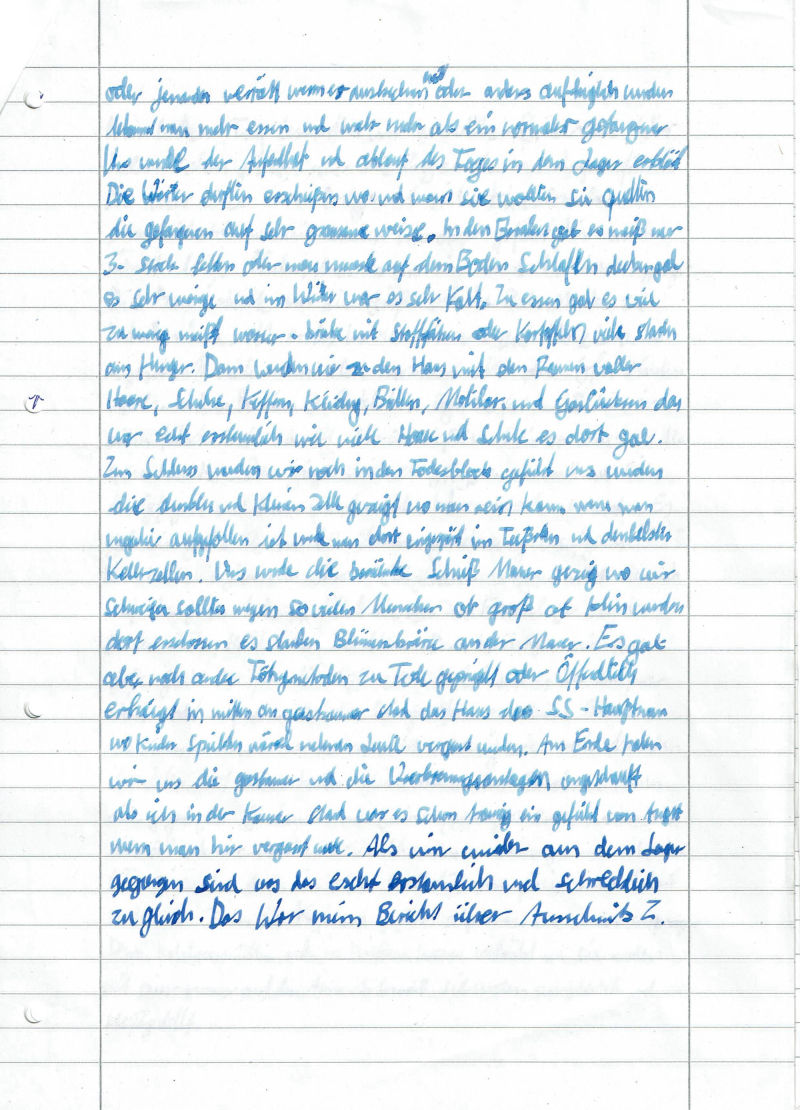 oder jemanden verrält wenn er ausbrechen will oder anders auffräglich wurden
bekommt man mehr essen und mehr als ein normaler gefangener
Uns wurde der Aufenthalt und ablauf des Tages in dem Lager erklärt
Die Wärter durften erschießen wo und wann sie wollten sie quellten
die gefangenen auf sehr grausame weise. In den Baraken gab es meiß nur
3- stock betten oder man musste auf dem Boden Schlafen decken gab
es sehr wenige und im Winter war es sehr Kalt. Zu essen gab es viel
zu wenig meißt wasser- brühe mit oder Kartoffeln viele starben
am Hunger. Dann wurden wir zu den Haus mit den Räumen voller
Haare, Schuhe, Koffern, Kleidung, Brillen, und das
war echt erstaunlich wie viele Haare und Schuhe es dort gab.
Zum Schluss wurden wir noch in den Todesblock gefühlt uns wurden
die dunklen und kleinen Zelle gezeigt wo man sein kann wenn man
negativ aufgefallen ist wurde man dort eingesperrt im Tiefsten und dunkelsten
Kellerzellen. Uns wurde die berühmte Schieß Mauer gezeig wo wir
schweigen sollten wegen so vielen Menschen ob groß ob klein wurden
dort erschossen es standen Blumenkränze an der Mauer. Es gab
aber noch andere Tötungsmetoden zu Tode geprügelt oder Öffentlich
erhängt in mitten an gaskammer stad das Haus des SS-Hauptmann
wo Kinder Spielten wärend nebenan Leute vergast wurden. Am Ende haben
wir uns die gaskamer und die Verbrennungsanlagen angeschauft
als ich in der Kamer stand war es schon traurig ein gefühl von Angst
wenn man hir vergast wurde. Als wir wieder aus dem Lager
gegangen sind was das escht erstaunlich und schrecklich
zu gleich. Das War mein Bericht über Auschwitz Z.